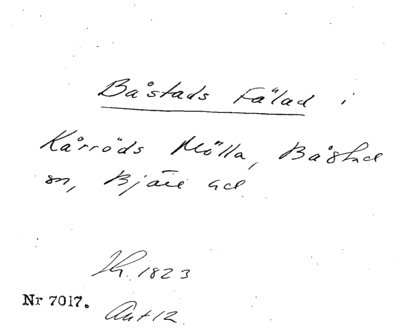 Båstads Fälad i
Kårröds Mölla, Båstad
sn, Bjäre hd
1823
Nr 7017.
Ant 12